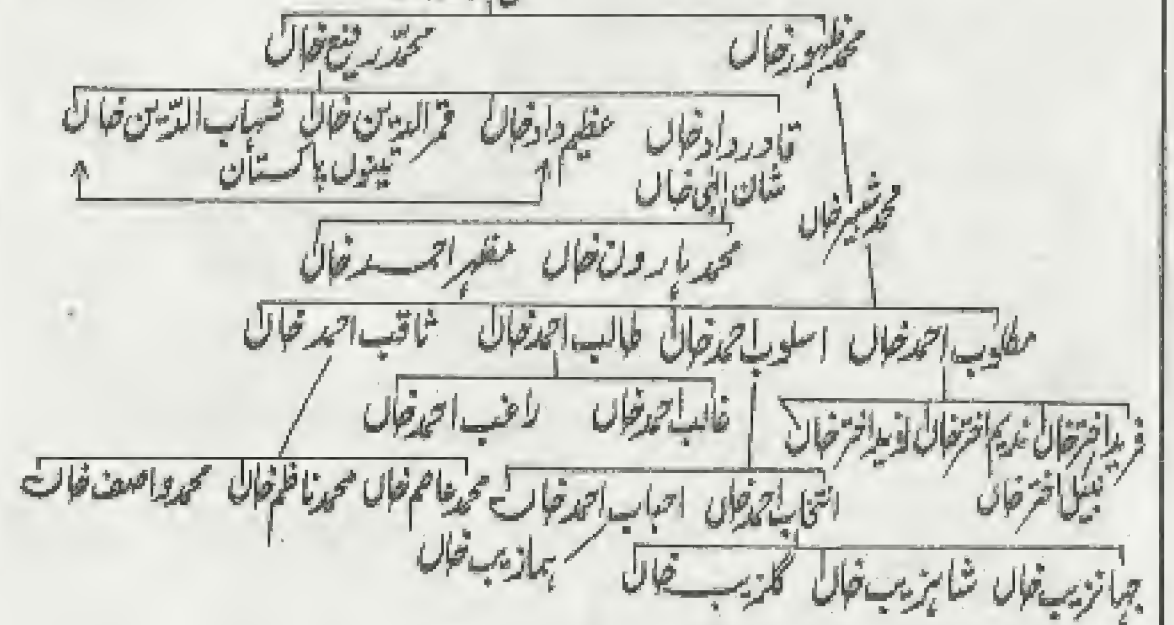 محمد ظہور خاں محمد رفیع خاں
قادر داد خاں عظیم داد خاں قمر الدین خاں شہاب الدین خاں
تینوں پاکستان
شان الٰہی خاں
محمد شبیر خاں
محمد ہارون خاں مظہر احمد خاں
مطلوب احمد خاں اسلوب احمد خاں طالب احمد خاں ثاقب احمد خاں
غالب احمد خاں راغب احمد خاں
فرید اختر خاں ندیم اختر خاں نوید اختر خاں
نبیل اختر خاں
انتخاب احمد خاں احباب احمد خاں محمد عاصم خاں محمد ناظم خاں محمد واصف خاں
ہمازیب خاں
جہانزیب خاں شاہزیب خاں گلزیب خاں